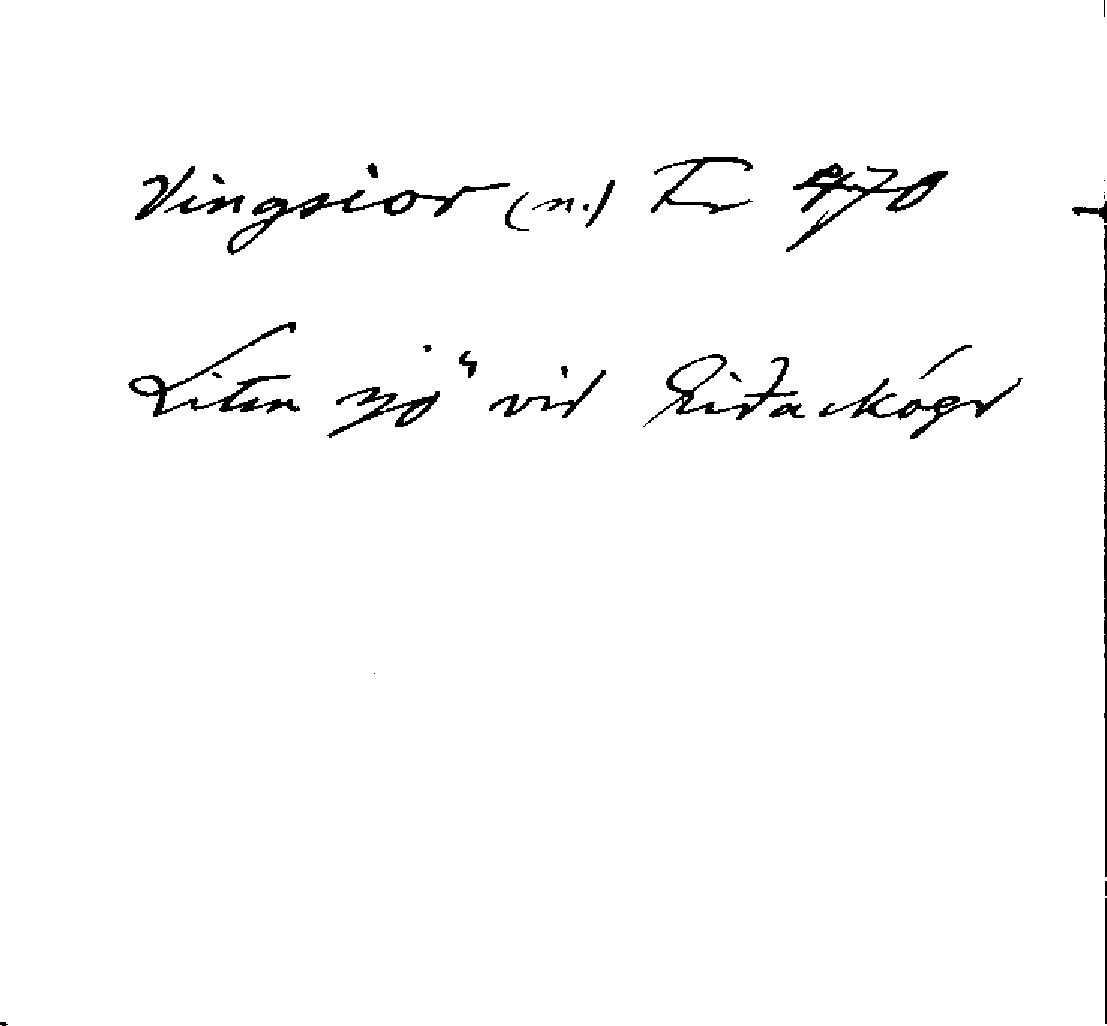 Vingsior (n.) Fr 470
Liten sjö vid Eiðaskógr